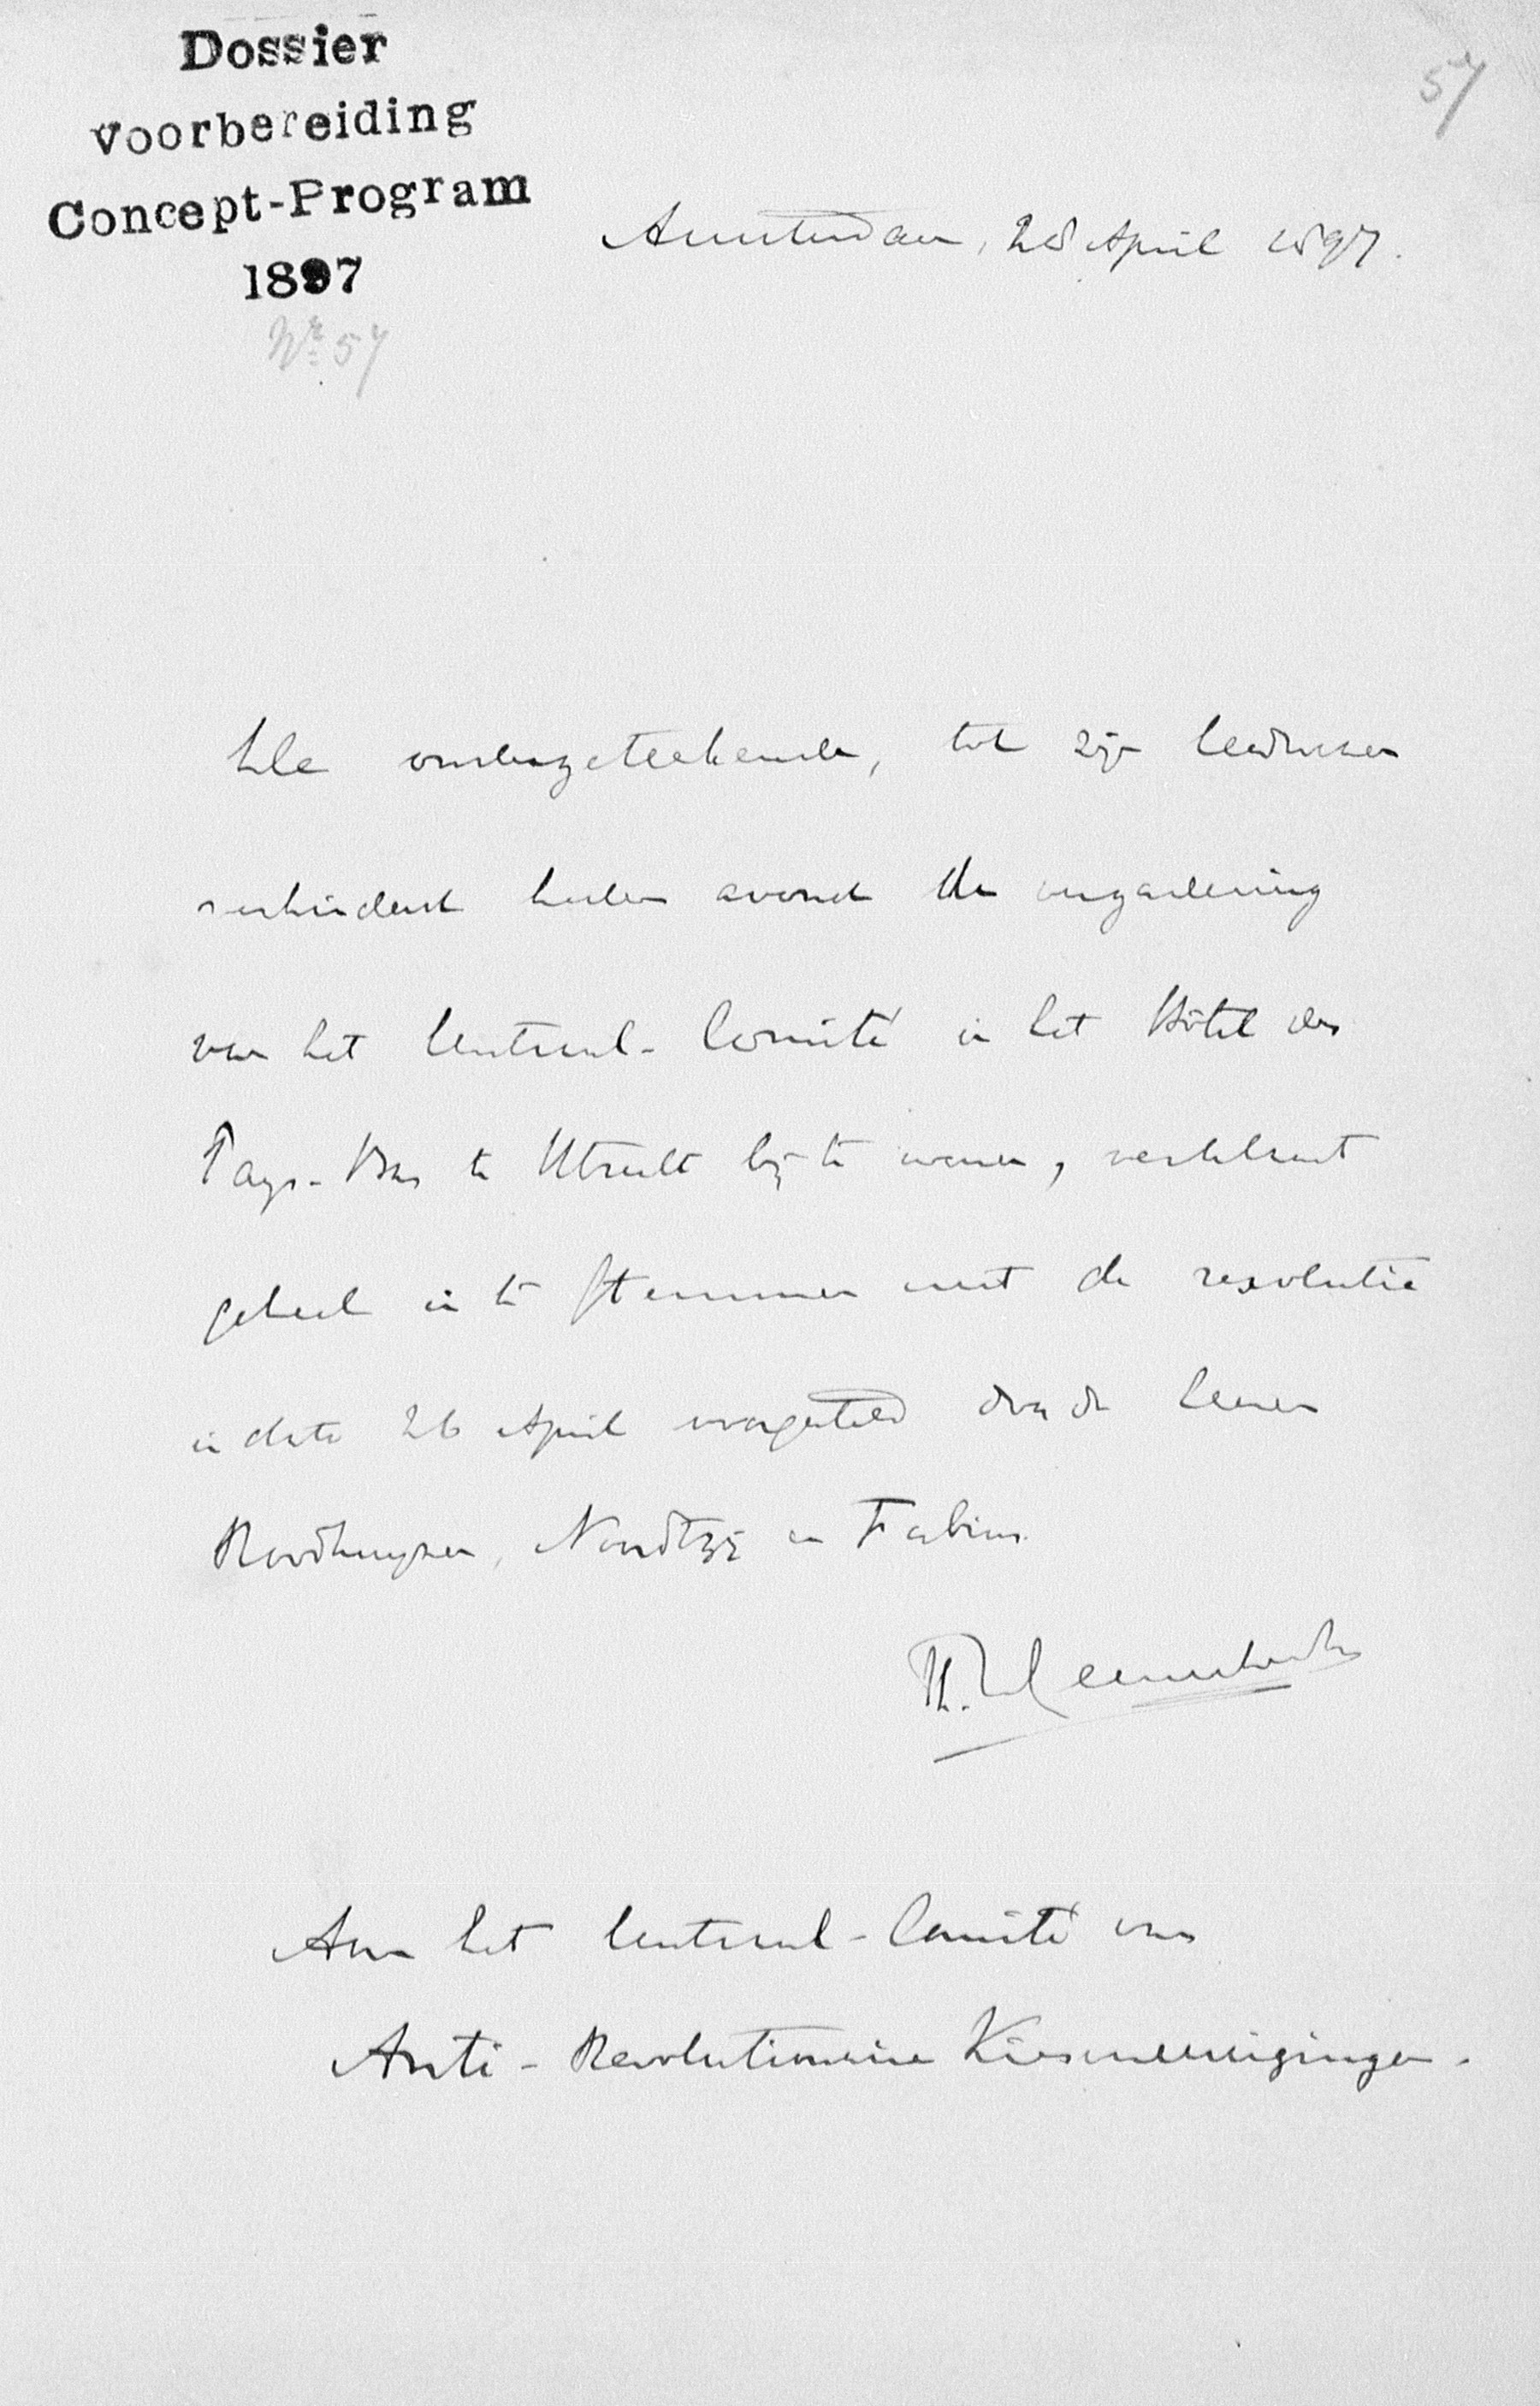 Dossier
Voorbereiding
Concept-Program
1897
Nr. 57
57
Amsterdam, 28 April 1897.
De ondergeteekende, tot zijn leedwezen
verhinderd heden avond de vergadering
van het Centraal-Comité in het Hôtel des
Pays-Bas te Utrecht bij te wonen, verklaart
geheel in te stemmen met de resolutie
in dato 26 April voorgesteld door de heeren
Roodhuyzen, Noordtzij en Fabius.
Th. Heemskerk
Aan het Centraal-Comité van
Anti-Revolutionaire Kiesvereenigingen.